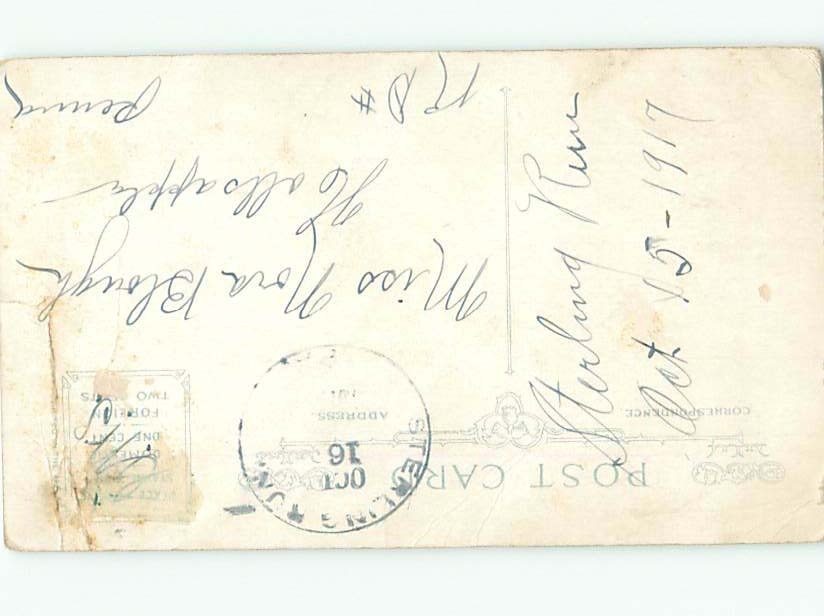 POST CARD
CORRESPONDENCE
ADDRESS
Sterling Run
Oct 15-1917
STERLING RUN
OCT
16
PLACE
STAMP
DOMESTIC
ONE CENT
FOREIGN
TWO CENTS
Miss Nora Blough
Hollsapple
R D #
Penna